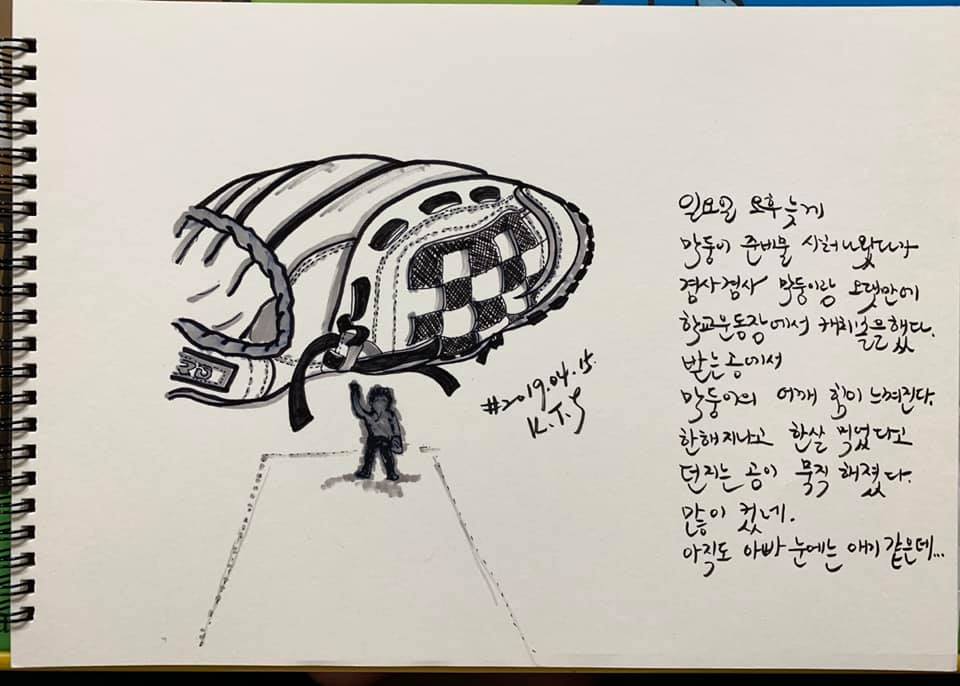 일요일 오후늦게
막둥이 준비물 사러나왔다가
겸사겸사 막둥이랑 오랫만에
학교운동장에서 캐치볼을했다.
받는공에서
막둥이의 어깨 힘이 느껴진다.
한해지나고 한살 먹었다고
던지는 공이 묵직해졌다.
많이 컸네.
아직도 아빠 눈에는 애기같은데...
#2019.04.15.
K.T.S